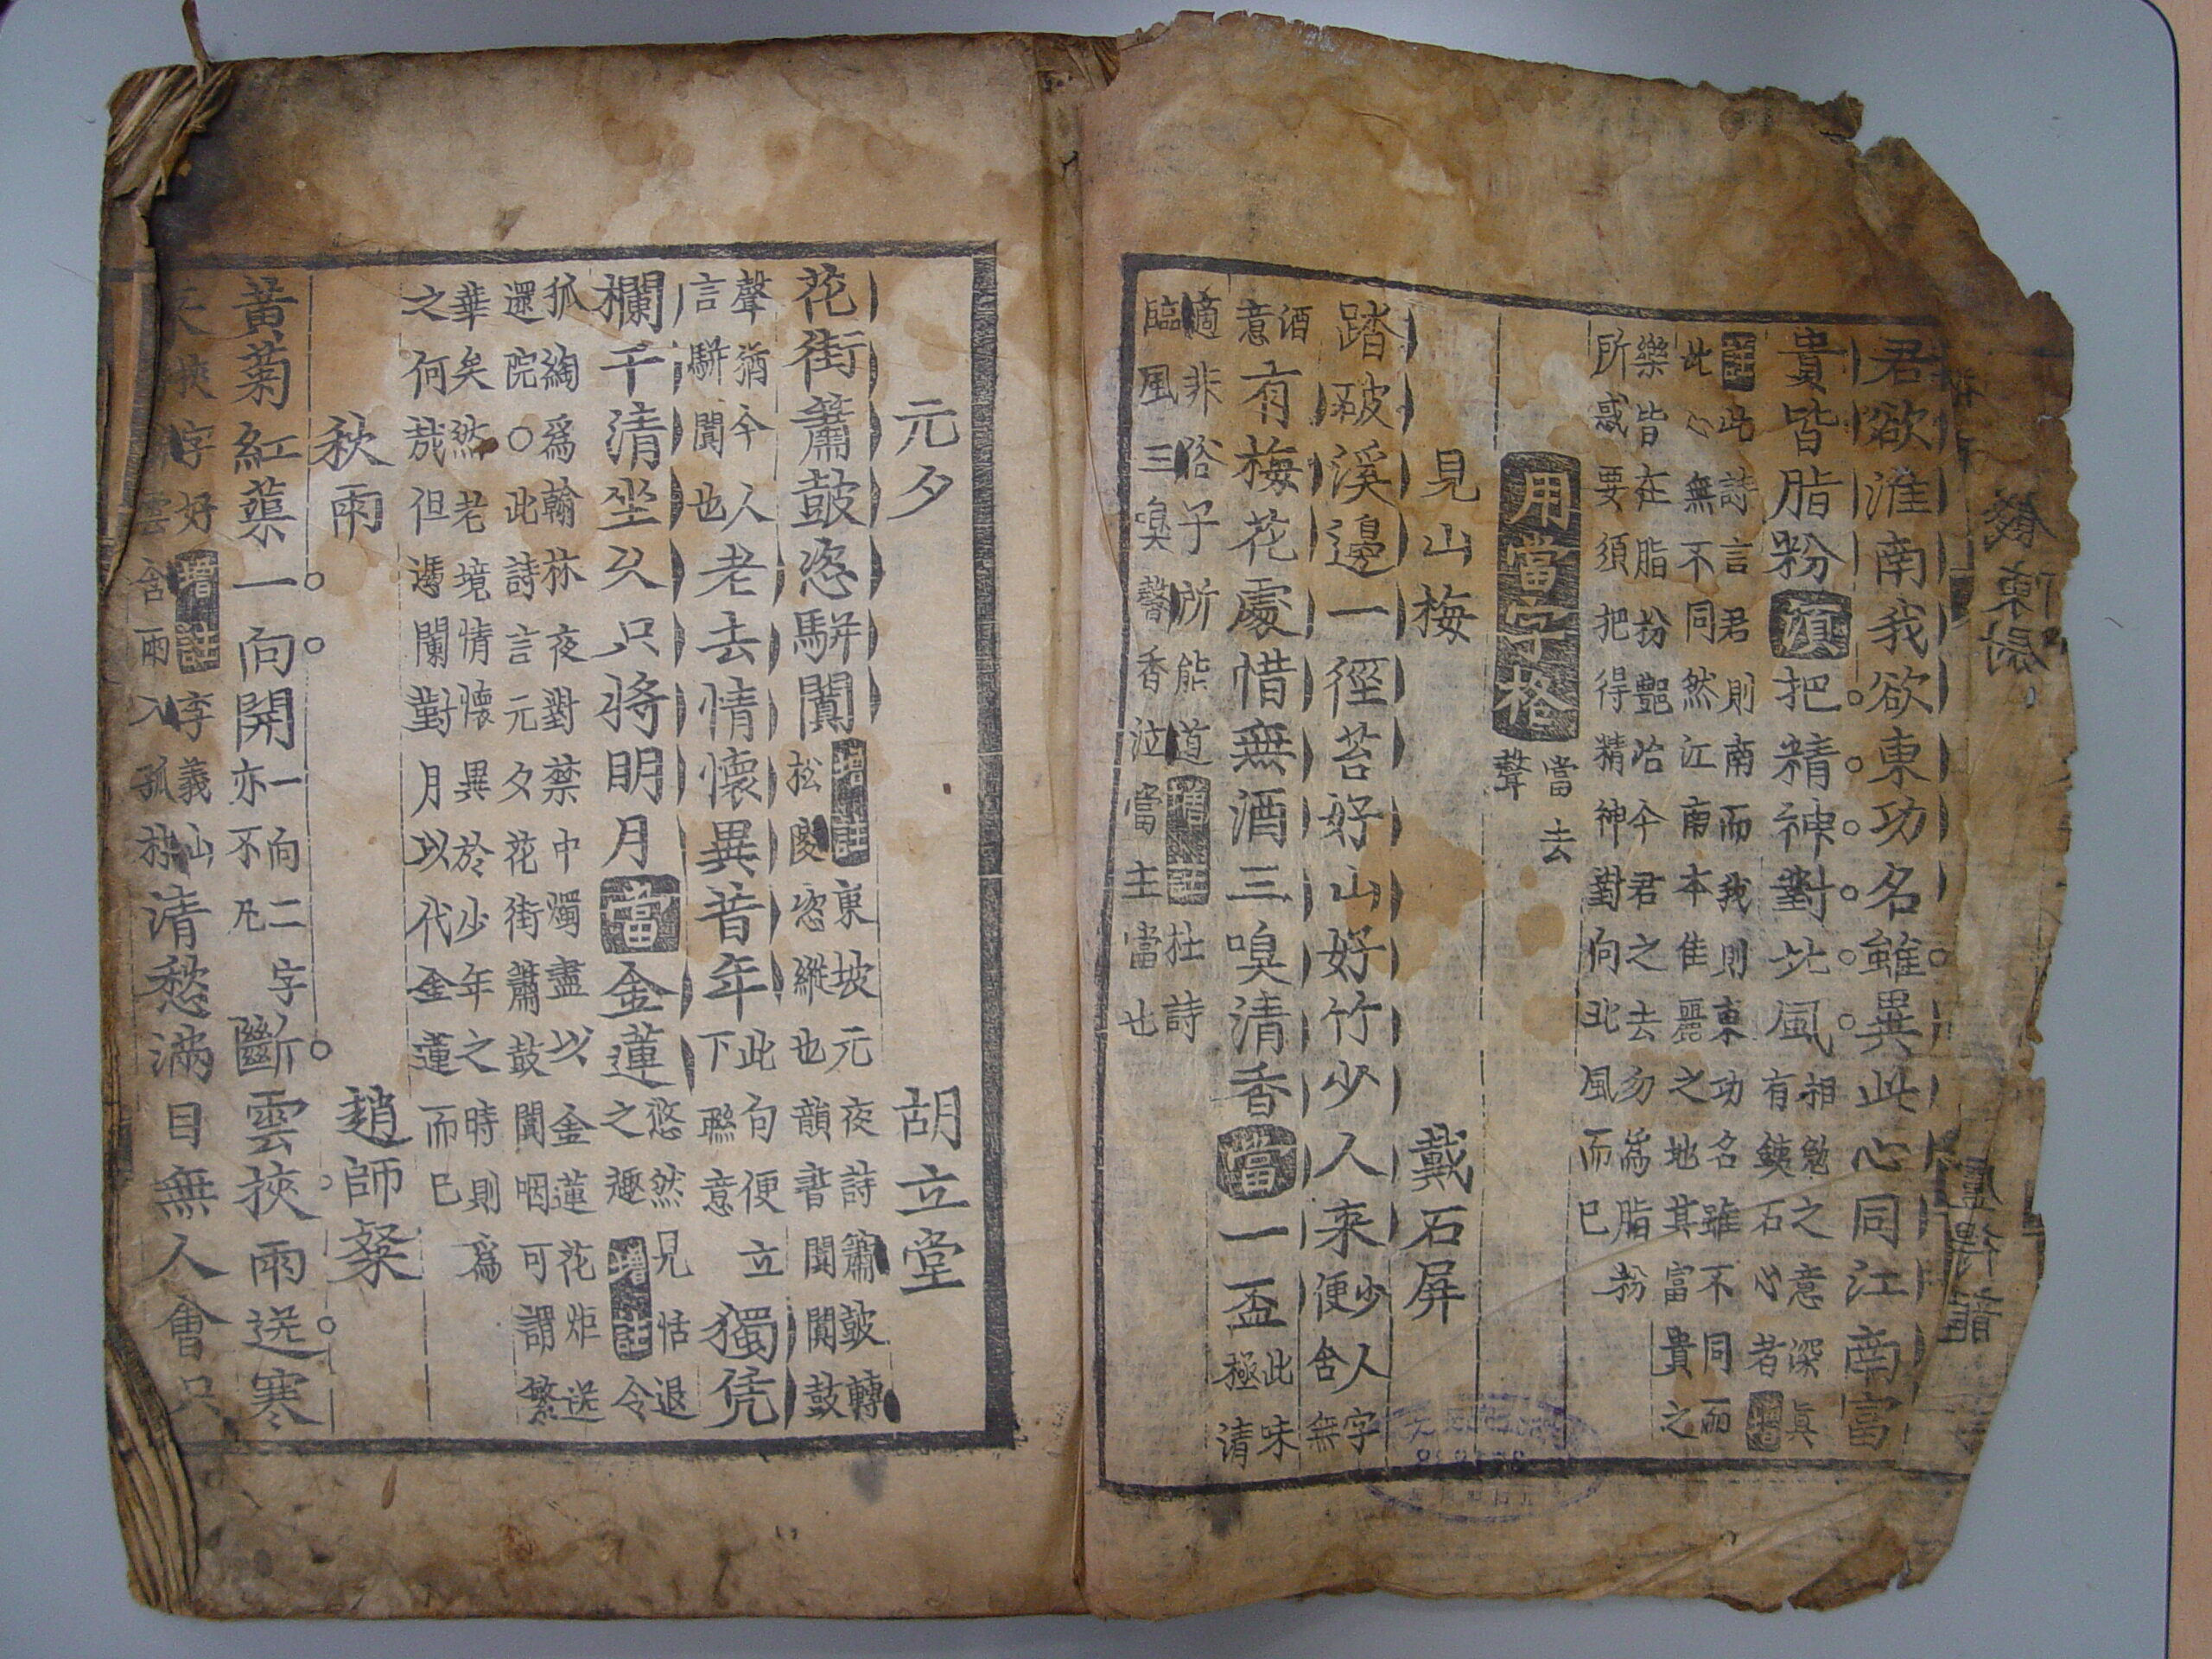 君欲淮南我欲東功名雖異此心同江南富
貴皆脂粉須把精神對北風相勉之意深眞有鐵石心者增
註此詩言君則南而我則東功名雖不同而此心無不同然江南本佳麗之地其富貴之
樂皆在脂粉艶冶今君之去勿爲脂粉所惑要須把得精神對向北風而已
用當字格當去聲
見山梅 戴石屛
踏破溪邊一徑苔好山好竹少人来少人字便舍無
酒意有梅花處惜無酒三嗅清香當一盃此味極清
適非俗子所能道增註杜詩臨風三嗅馨香泣當主當也
元夕 胡立堂
花街簫鼓恣駢闐增註東坡元夜詩簫鼓轉松陵恣縱也韻書闐闐鼓
聲猶今人言駢闐也老去情懷異昔年此句便立下聯意獨凭
欄干清坐久只將明月當金蓮悠然見恬退之趣增註令
狐綯爲翰林夜對禁中燭盡以金蓮花炬送還院○此詩言元夕花街簫鼓闐咽可謂繁
華矣然老境情懷異於少年之時則爲之何哉但憑闌對月以代金蓮而已
秋雨 趙師秀
黃菊紅蕖一向開一向二字亦不凡斷雲挾雨送寒
挾字好增註李義山雲含雨入孤林清愁滿目無人會只